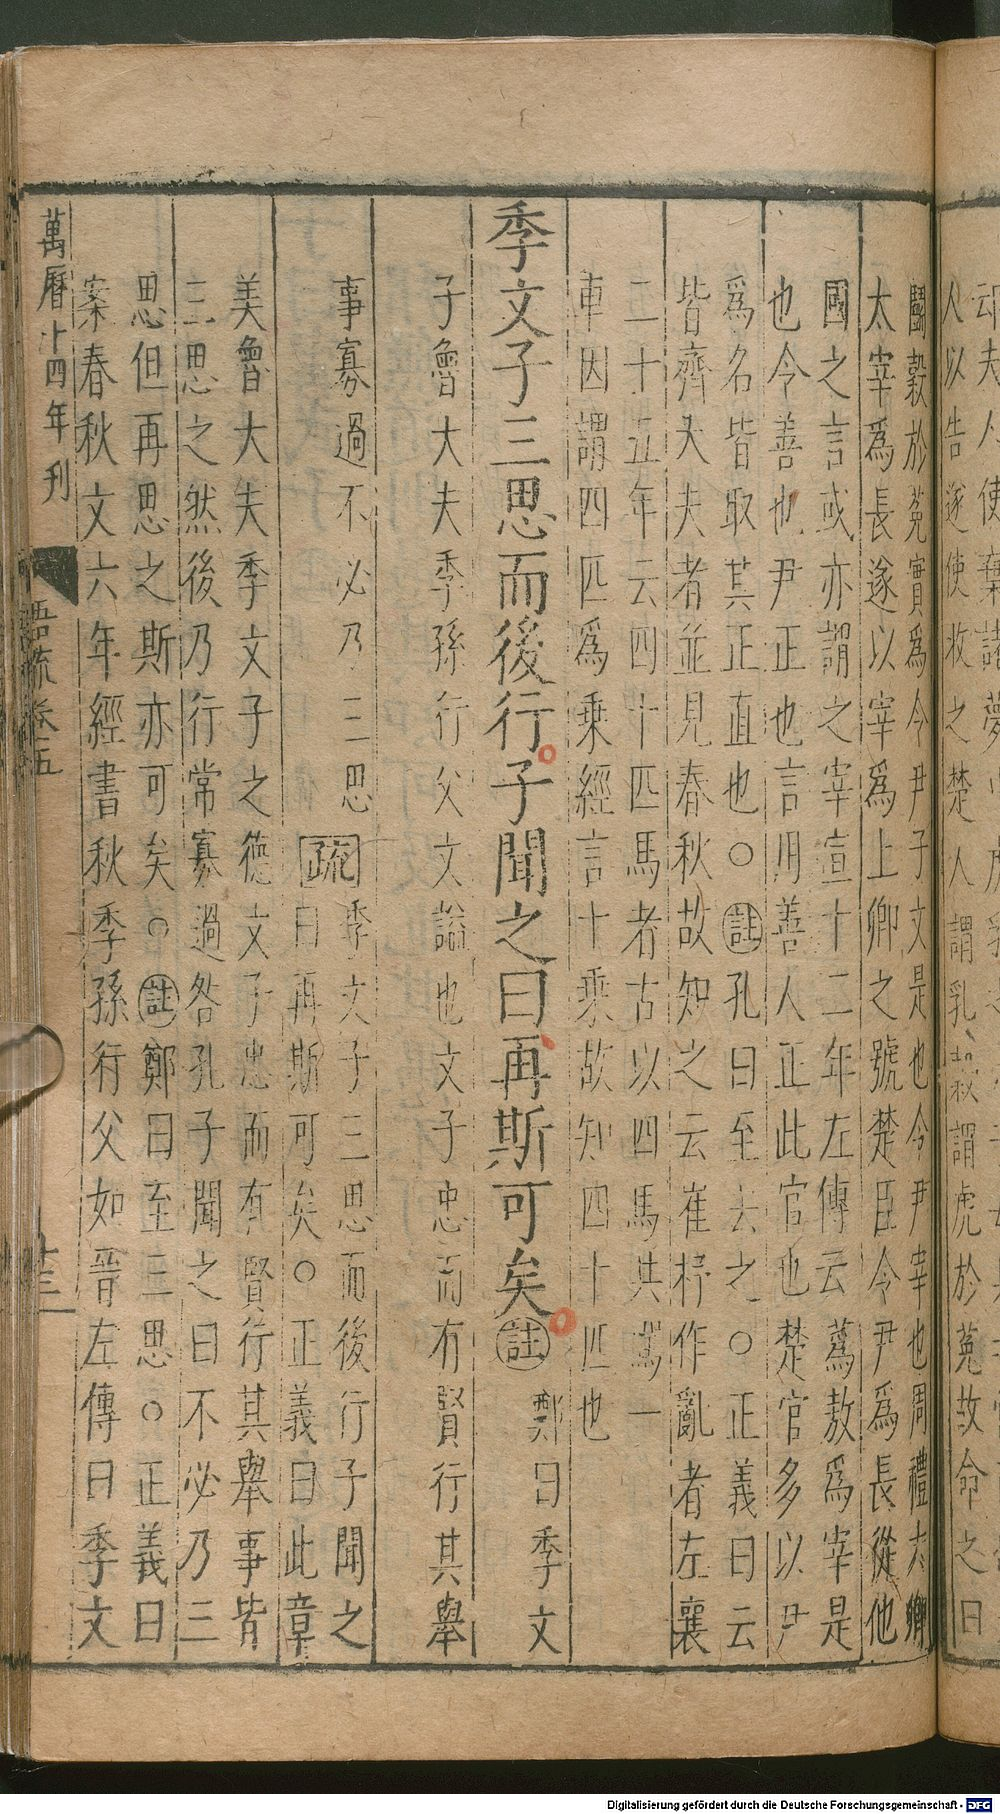 人以告遂使收之楚人謂乳、穀謂虎於菟故命之曰
鬭穀於菟實爲令尹子文是也令尹宰也周禮六卿
太宰爲長遂以宰爲上卿之號楚臣令尹爲長從他
國之言或亦謂之宰宣十二年左傳云蒍敖爲宰是
也令善也尹正也言用善人正此官也楚官多以尹
爲名皆取其正直也○註孔曰至去之○正義曰云
皆齊大夫者並見春秋故知之云崔杼作亂者左襄
二十五年云四十匹馬者古以四馬共駕一
車因謂四匹爲乘經言十乘故知四十匹也
季文子三思而後行子聞之曰再斯可矣註鄭曰季文
子魯大夫季孫行父文謚也文子忠而有賢行其舉
事寡過不必乃三思疏季文子三思而後行子聞之
曰再斯可矣○正義曰此章
美魯大夫季文子之德文子忠而有賢行其舉事皆
三思之然後乃行常寡過咎孔子聞之曰不必乃三
思但再思之斯亦可矣○註鄭曰至三思○正義曰
案春秋文六年經書秋季孫行父如晉左傳曰季文
萬曆十四年刊
語疏卷五
Digitalisierung gefördert durch die Deutsche Forschungsgemeinschaft - DFG